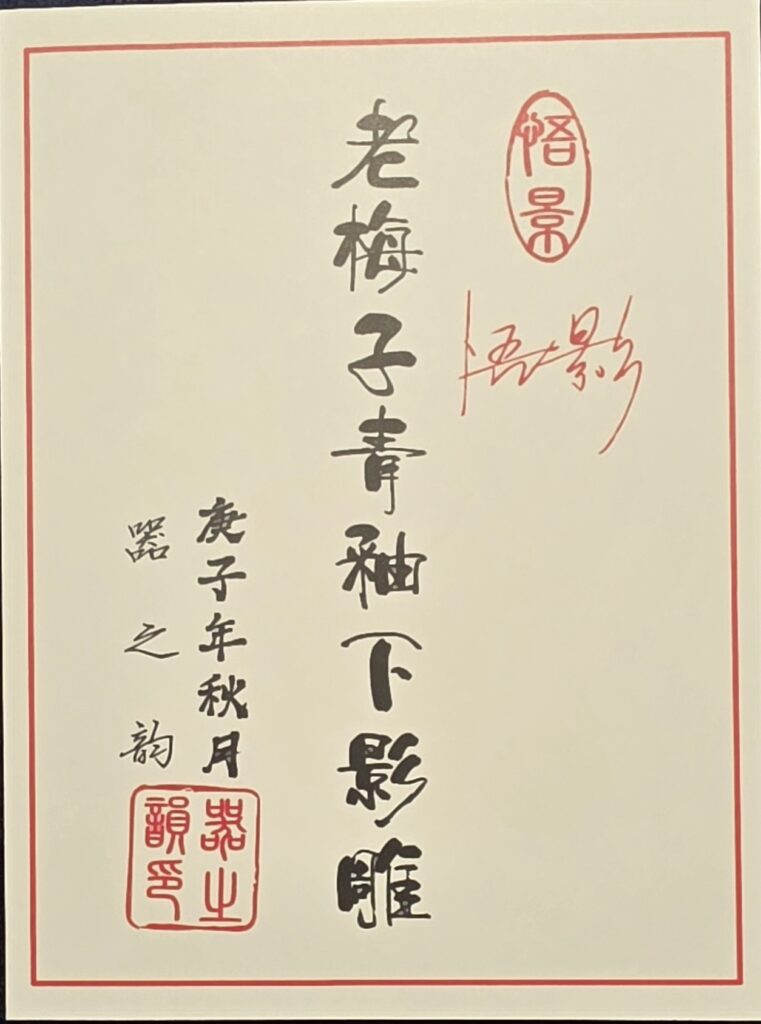 悟景
悟影
老梅子青釉下影雕
庚子年秋月
器之韵
器之韻印